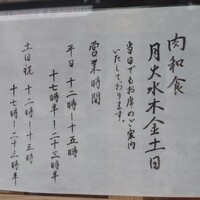 肉和食
月火水木金土日
当日でもお席のご案内
いたしております。
営業時間
平日 十二時〜十五時
十七時〜二十三時半
土日祝 十二時〜十五時
十七時〜二十三時半